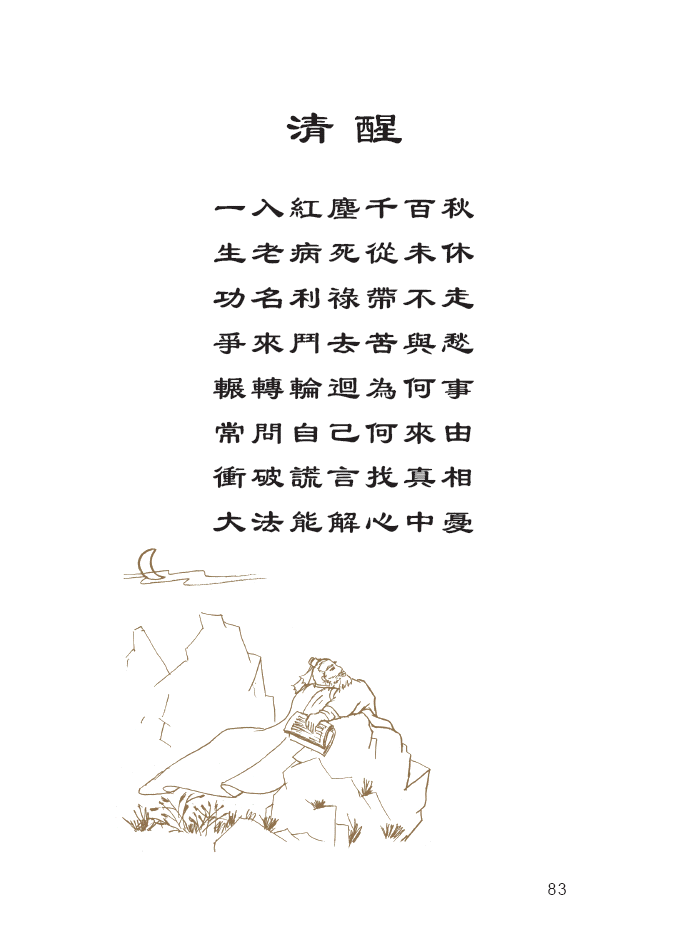 清醒
一入紅塵千百秋
生老病死從未休
功名利祿帶不走
爭來鬥去苦與愁
輾轉輪迴為何事
常問自己何來由
衝破謊言找真相
大法能解心中憂
83